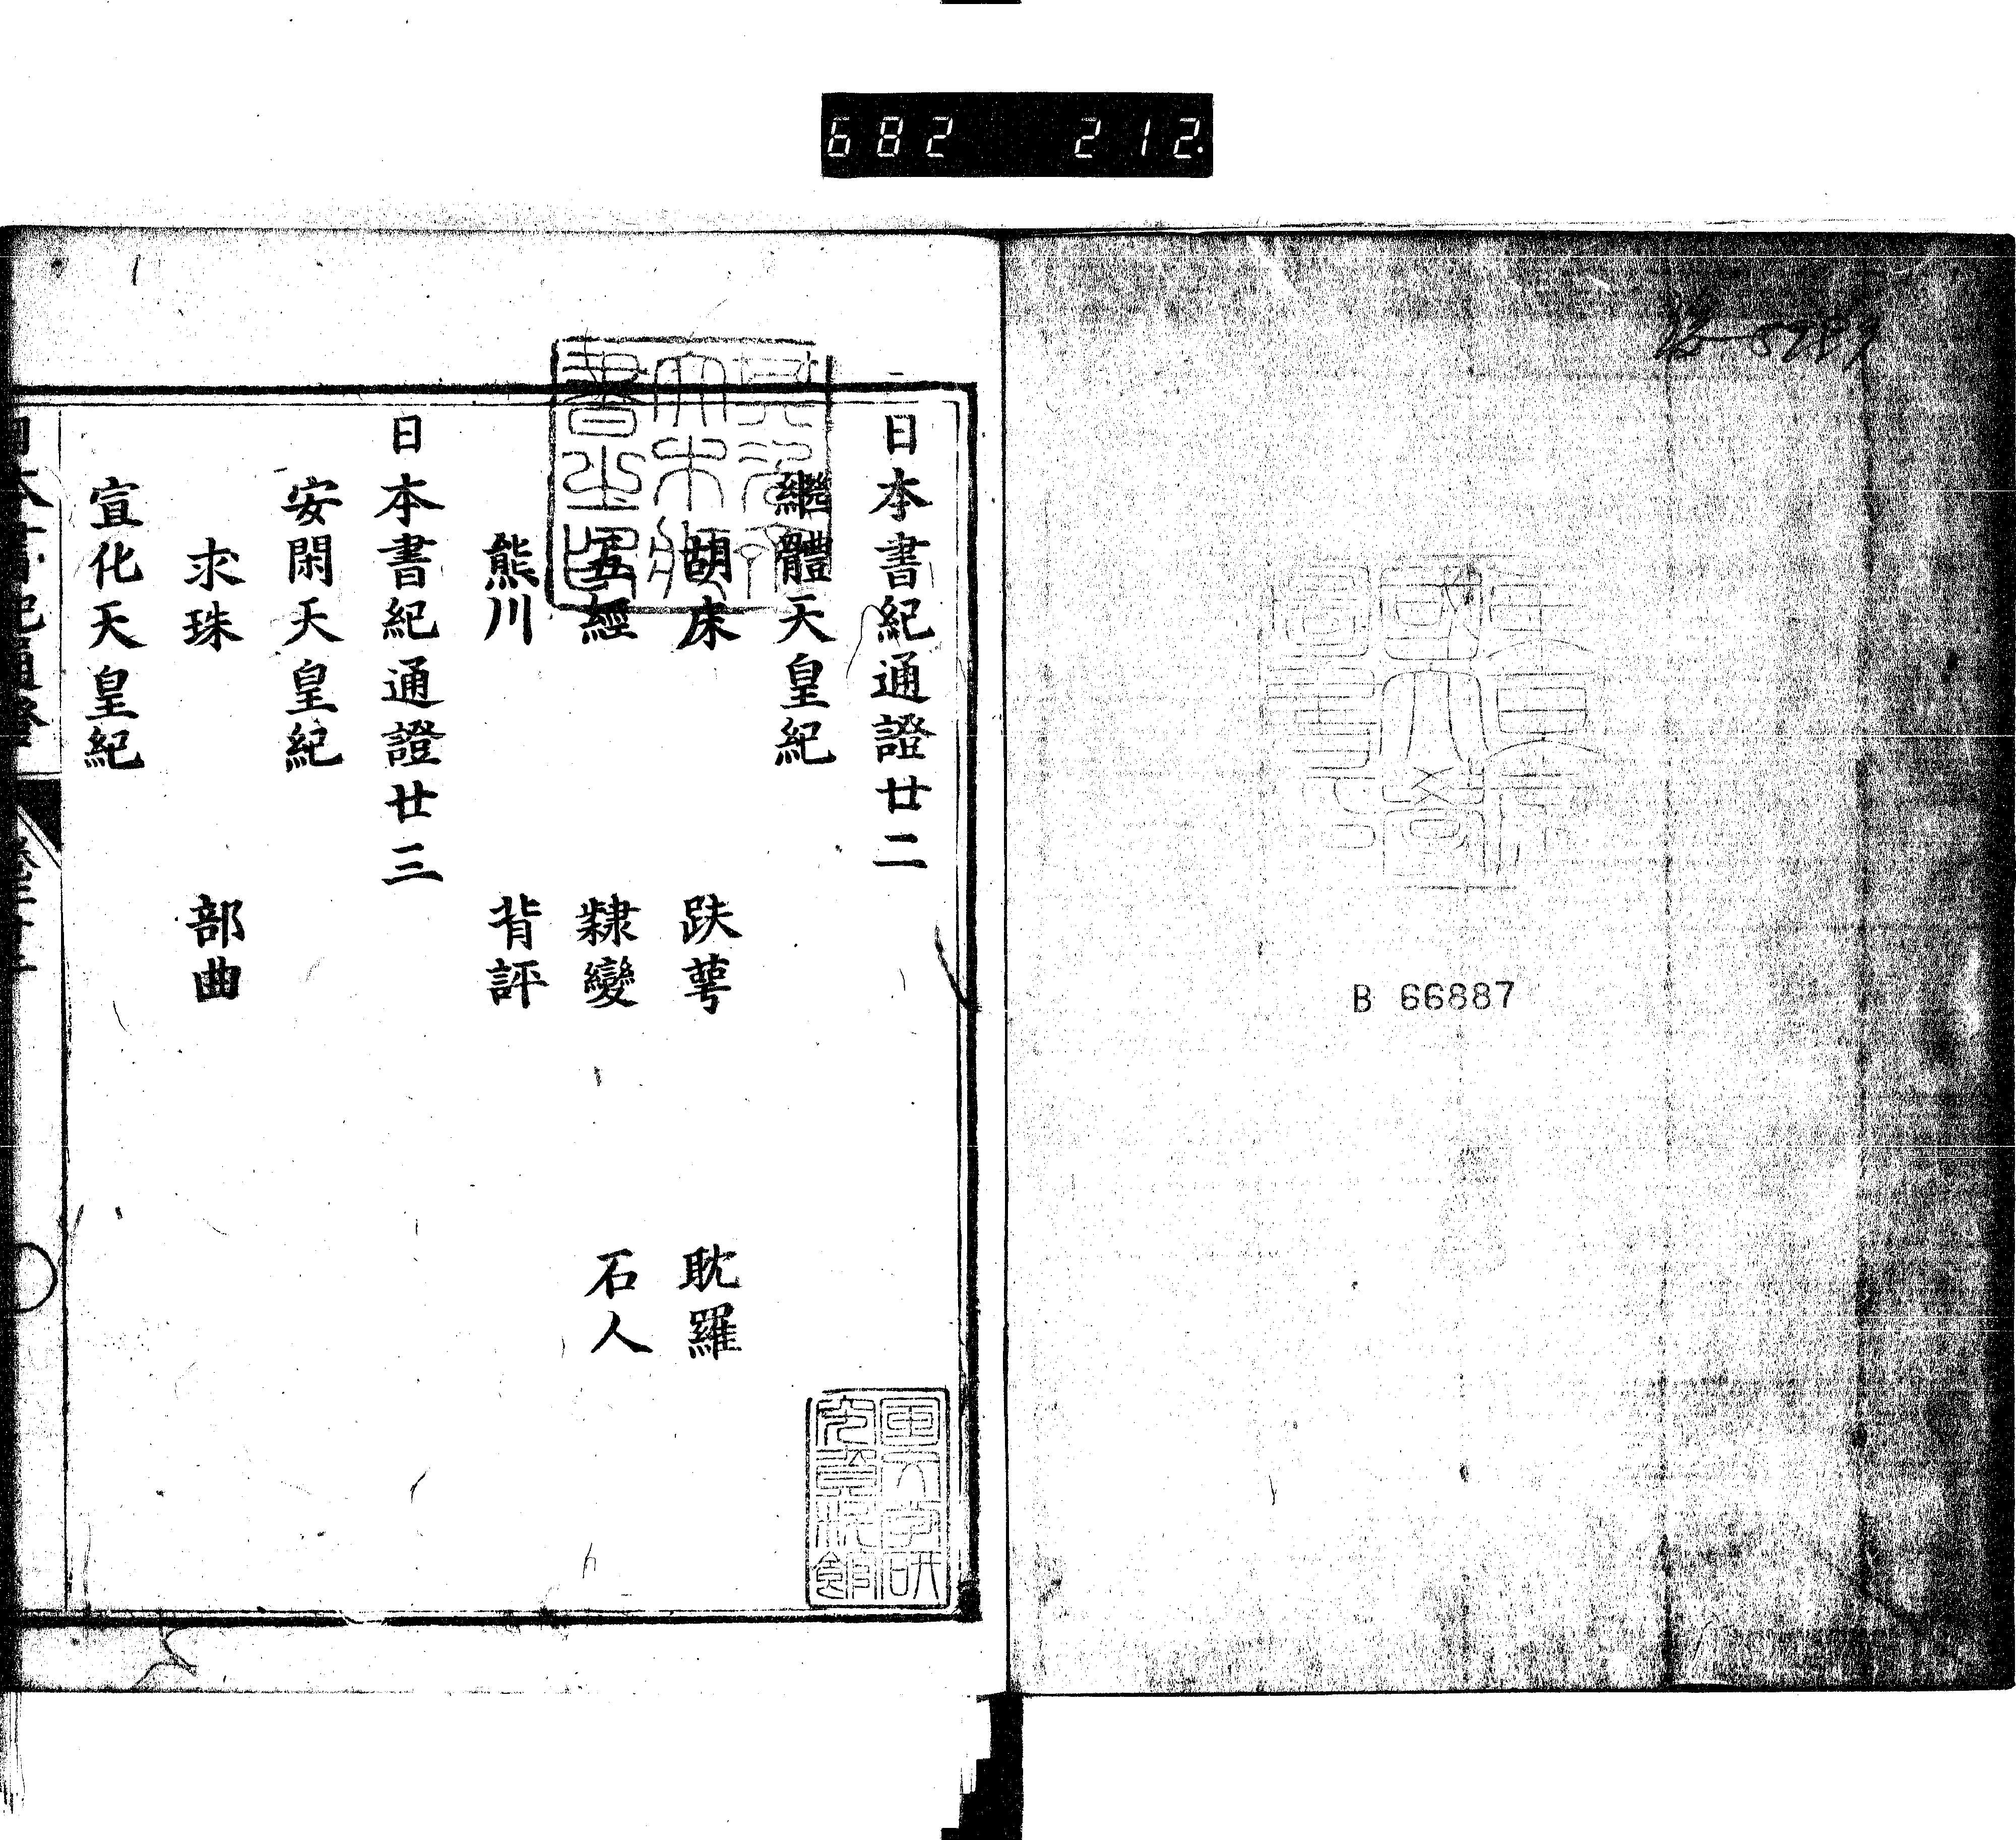 682 212
B 66887
日本書紀通證廿二
繼體天皇紀
胡床 趺萼 耽羅
五經 隸變 石人
熊川 背評
日本書紀通證廿三
安閑天皇紀
求珠 部曲
宣化天皇紀